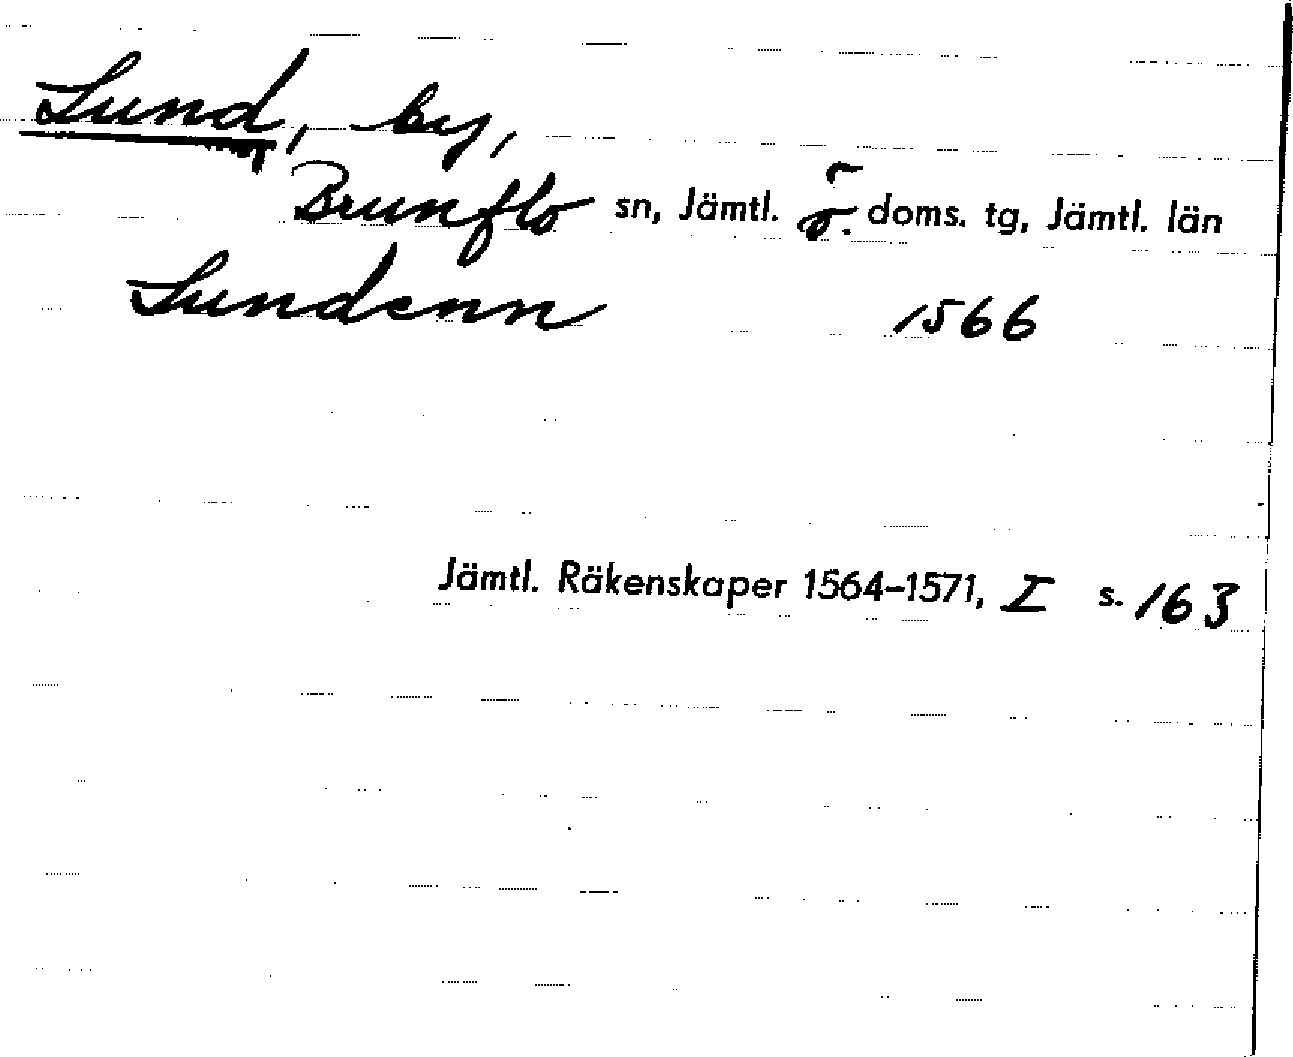 Lund, by,
Brunflo sn, Jämtl. ö. doms. tg, Jämtl. län
Lundenn 1566
Jämtl. Räkenskaper 1564-1571, I s. 163